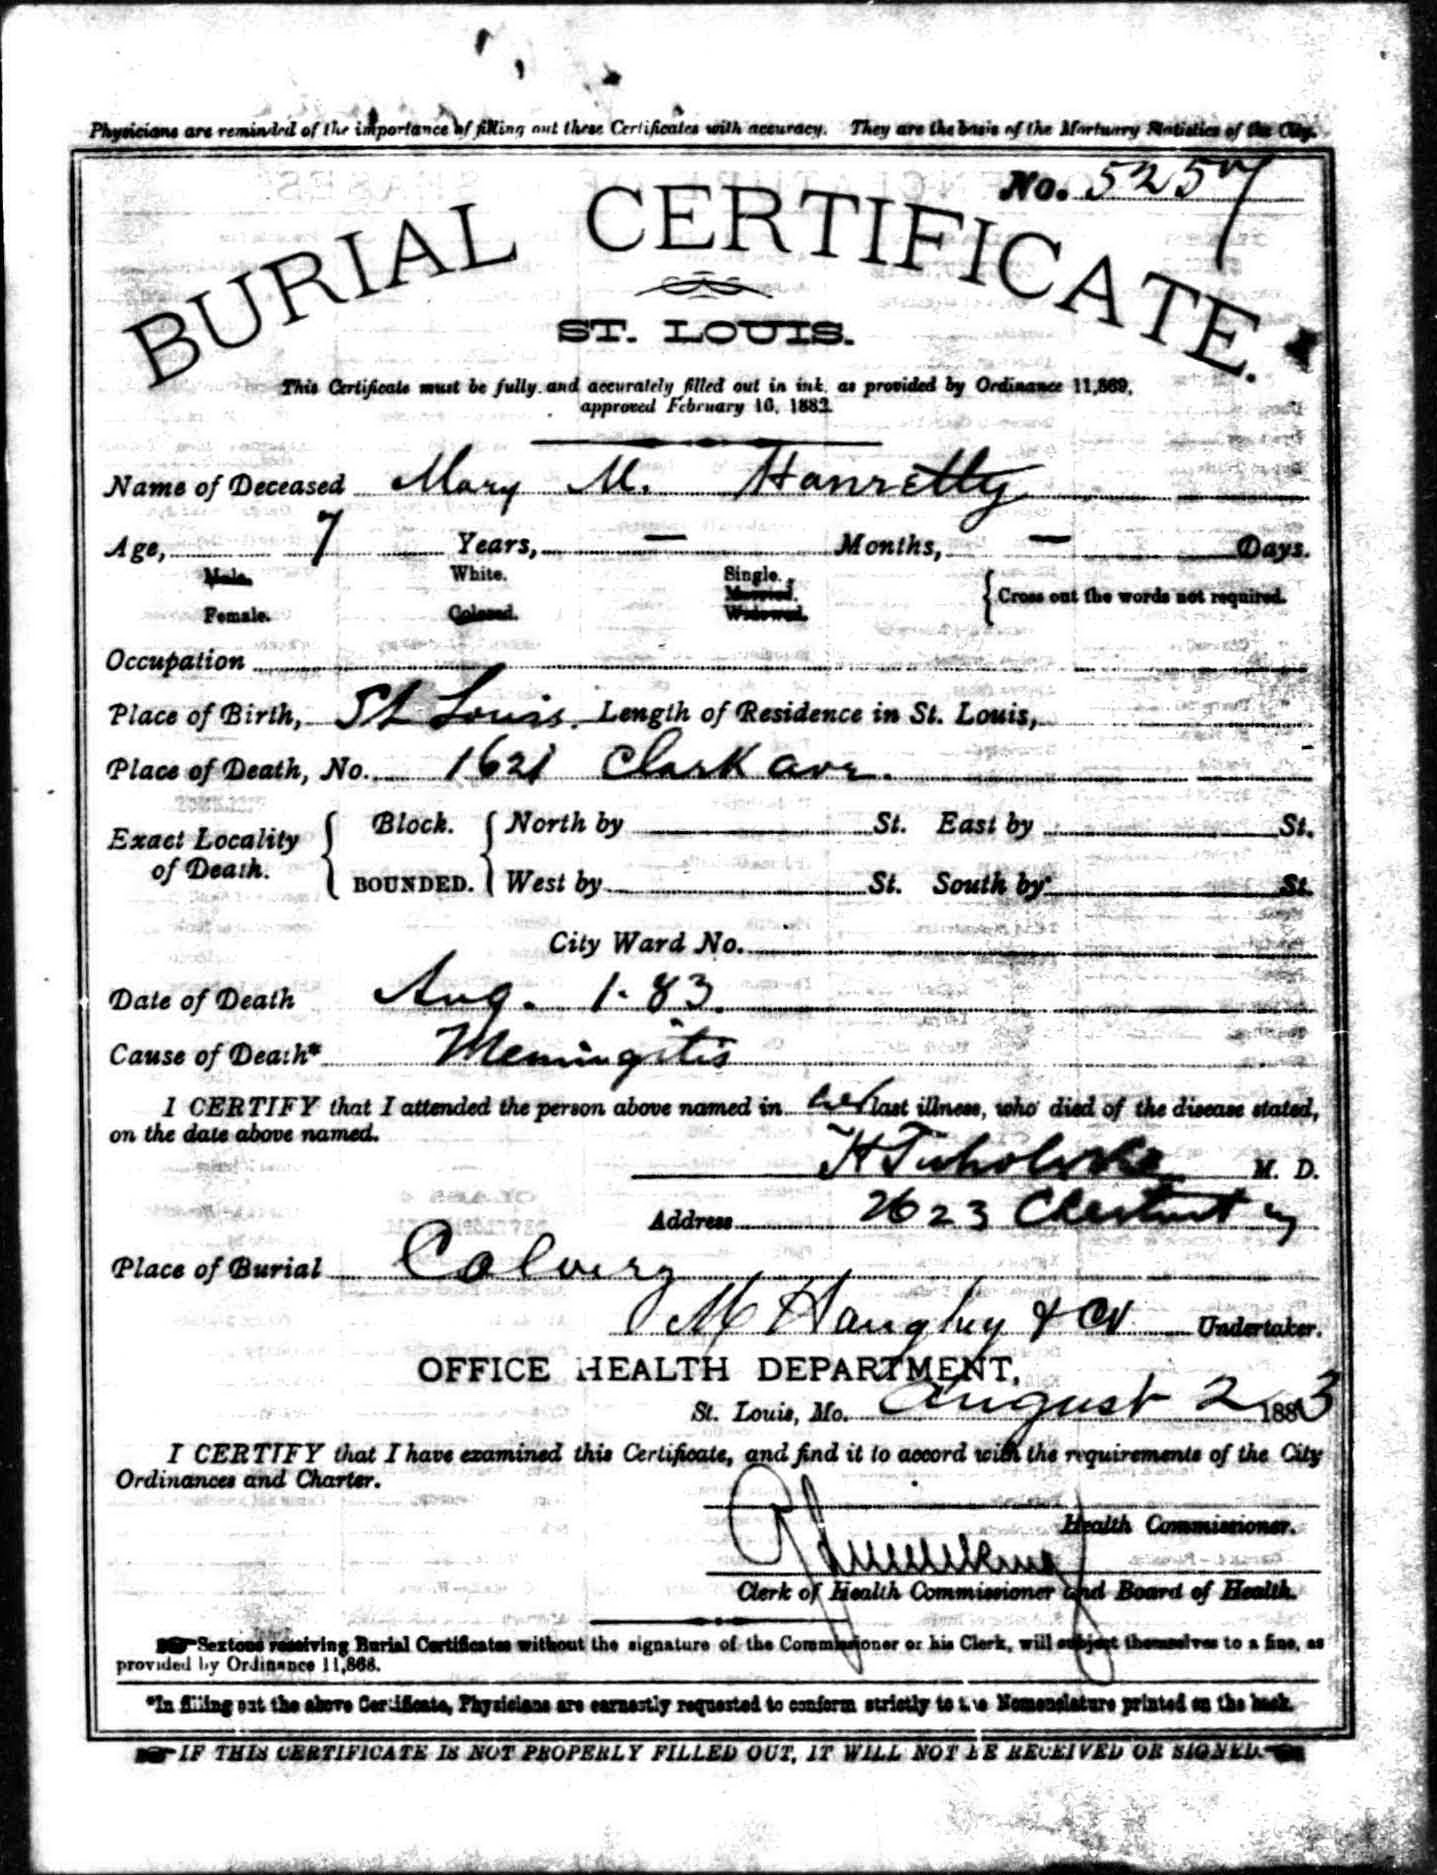 Physicians are reminded of the importance of filling out these Certificates with accuracy. They are the basis of the Mortuary Statistics of the City.
No. 5257
BURIAL CERTIFICATE.
ST. LOUIS.
This Certificate must be fully and accurately filled out in ink, as provided by Ordinance 11,869,
approved February 16, 1882.
Name of Deceased Mary M. Hanretty
Age, 7 Years, — Months, — Days.
Male. White. Single.
Married. Cross out the words not required.
Female. Colored. Widowed.
Occupation
Place of Birth, St Louis. Length of Residence in St. Louis,
Place of Death, No. 1621 Clark ave.
Exact Locality of Death. Block. North by St. East by St.
BOUNDED. West by St. South by St.
City Ward No.
Date of Death Aug. 1. 83.
Cause of Death* Meningitis
I CERTIFY that I attended the person above named in her last illness, who died of the disease stated,
on the date above named.
H Tuholske M. D.
Address 2623 Chestnut
Place of Burial Calvery
M Haughey & Co Undertaker.
OFFICE HEALTH DEPARTMENT,
St. Louis, Mo. August 2 1883
I CERTIFY that I have examined this Certificate, and find it to accord with the requirements of the City
Ordinances and Charter.
Health Commissioner.
Clerk of Health Commissioner and Board of Health.
Sextons receiving Burial Certificates without the signature of the Commissioner or his Clerk, will subject themselves to a fine, as
provided by Ordinance 11,868.
*In filling out the above Certificate, Physicians are earnestly requested to conform strictly to the Nomenclature printed on the back.
IF THIS CERTIFICATE IS NOT PROPERLY FILLED OUT, IT WILL NOT BE RECEIVED OR SIGNED.